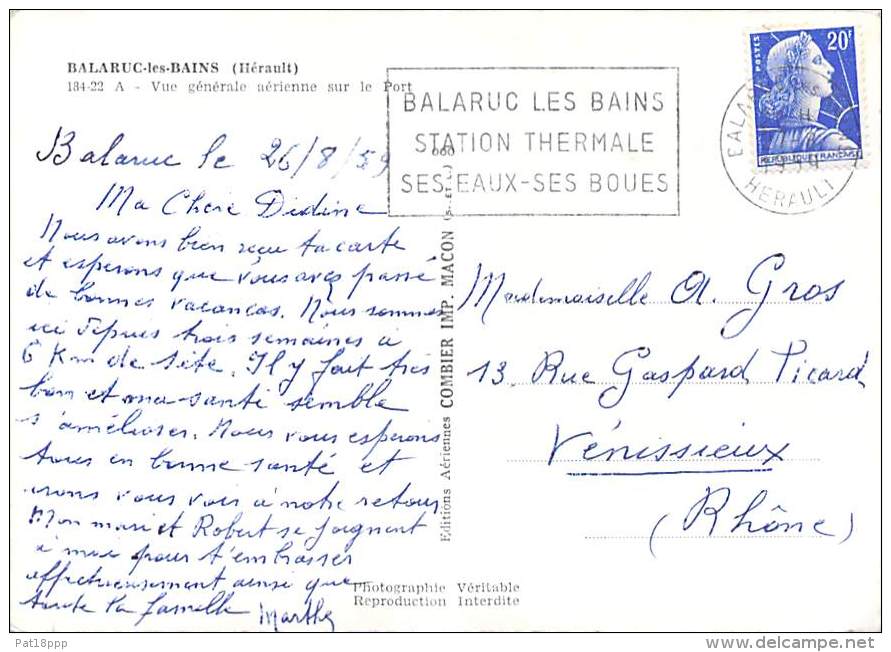 BALARUC-les-BAINS (Hérault)
184-22 A - Vue générale aérienne sur le Port
BALARUC LES BAINS
STATION THERMALE
SES EAUX-SES BOUES
POSTES
20F
REPUBLIQUE FRANÇAISE
HERAULT
Balaruc le 26/8/59
Ma Chère Didine
Nous avons bien reçu ta carte
et esperons que vous avez passé
de bonnes vacances. Nous sommes
ici depuis trois semaines à
6 Km de Sète. Il y fait très
bon et ma santé semble
s'améliorer. Nous vous esperons
tous en bonne santé et
irons vous voir à notre retour
Mon mari et Robert se joignent
à moi pour t'embrasser
affectueusement ainsi que
toute la famille Marthe
Editions Aériennes COMBIER IMP. MACON (S.-et-L.)
Mademoiselle A. Gros
13, Rue Gaspard Picard
Vénissieux
(Rhône)
Photographie Véritable
Reproduction Interdite
Pat18ppp
www.delcampe.net